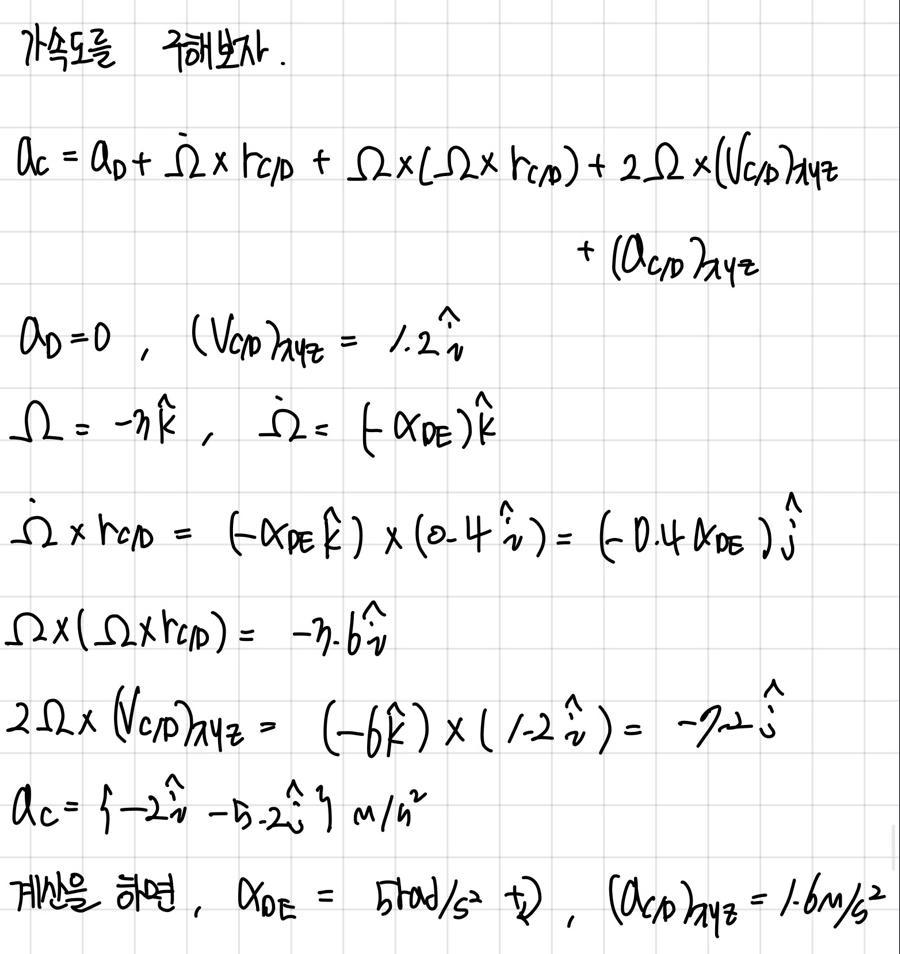 가속도를 구해보자.
a_C = a_D + Ω̇ × r_C/D + Ω×(Ω × r_C/D) + 2Ω × (V_C/D)_xyz
+ (a_C/D)_xyz
a_D = 0 , (V_C/D)_xyz = 1.2 î
Ω = -3k̂ , Ω̇ = (-α_DE)k̂
Ω̇ × r_C/D = (-α_DE k̂) × (0.4 î) = (-0.4 α_DE) ĵ
Ω×(Ω×r_C/D) = -3.6 î
2Ω × (V_C/D)_xyz = (-6k̂) × (1.2 î) = -7.2 ĵ
a_C = {-2î -5.2ĵ} m/s²
계산을 하면, α_DE = 5rad/s² , (a_C/D)_xyz = 1.6m/s²